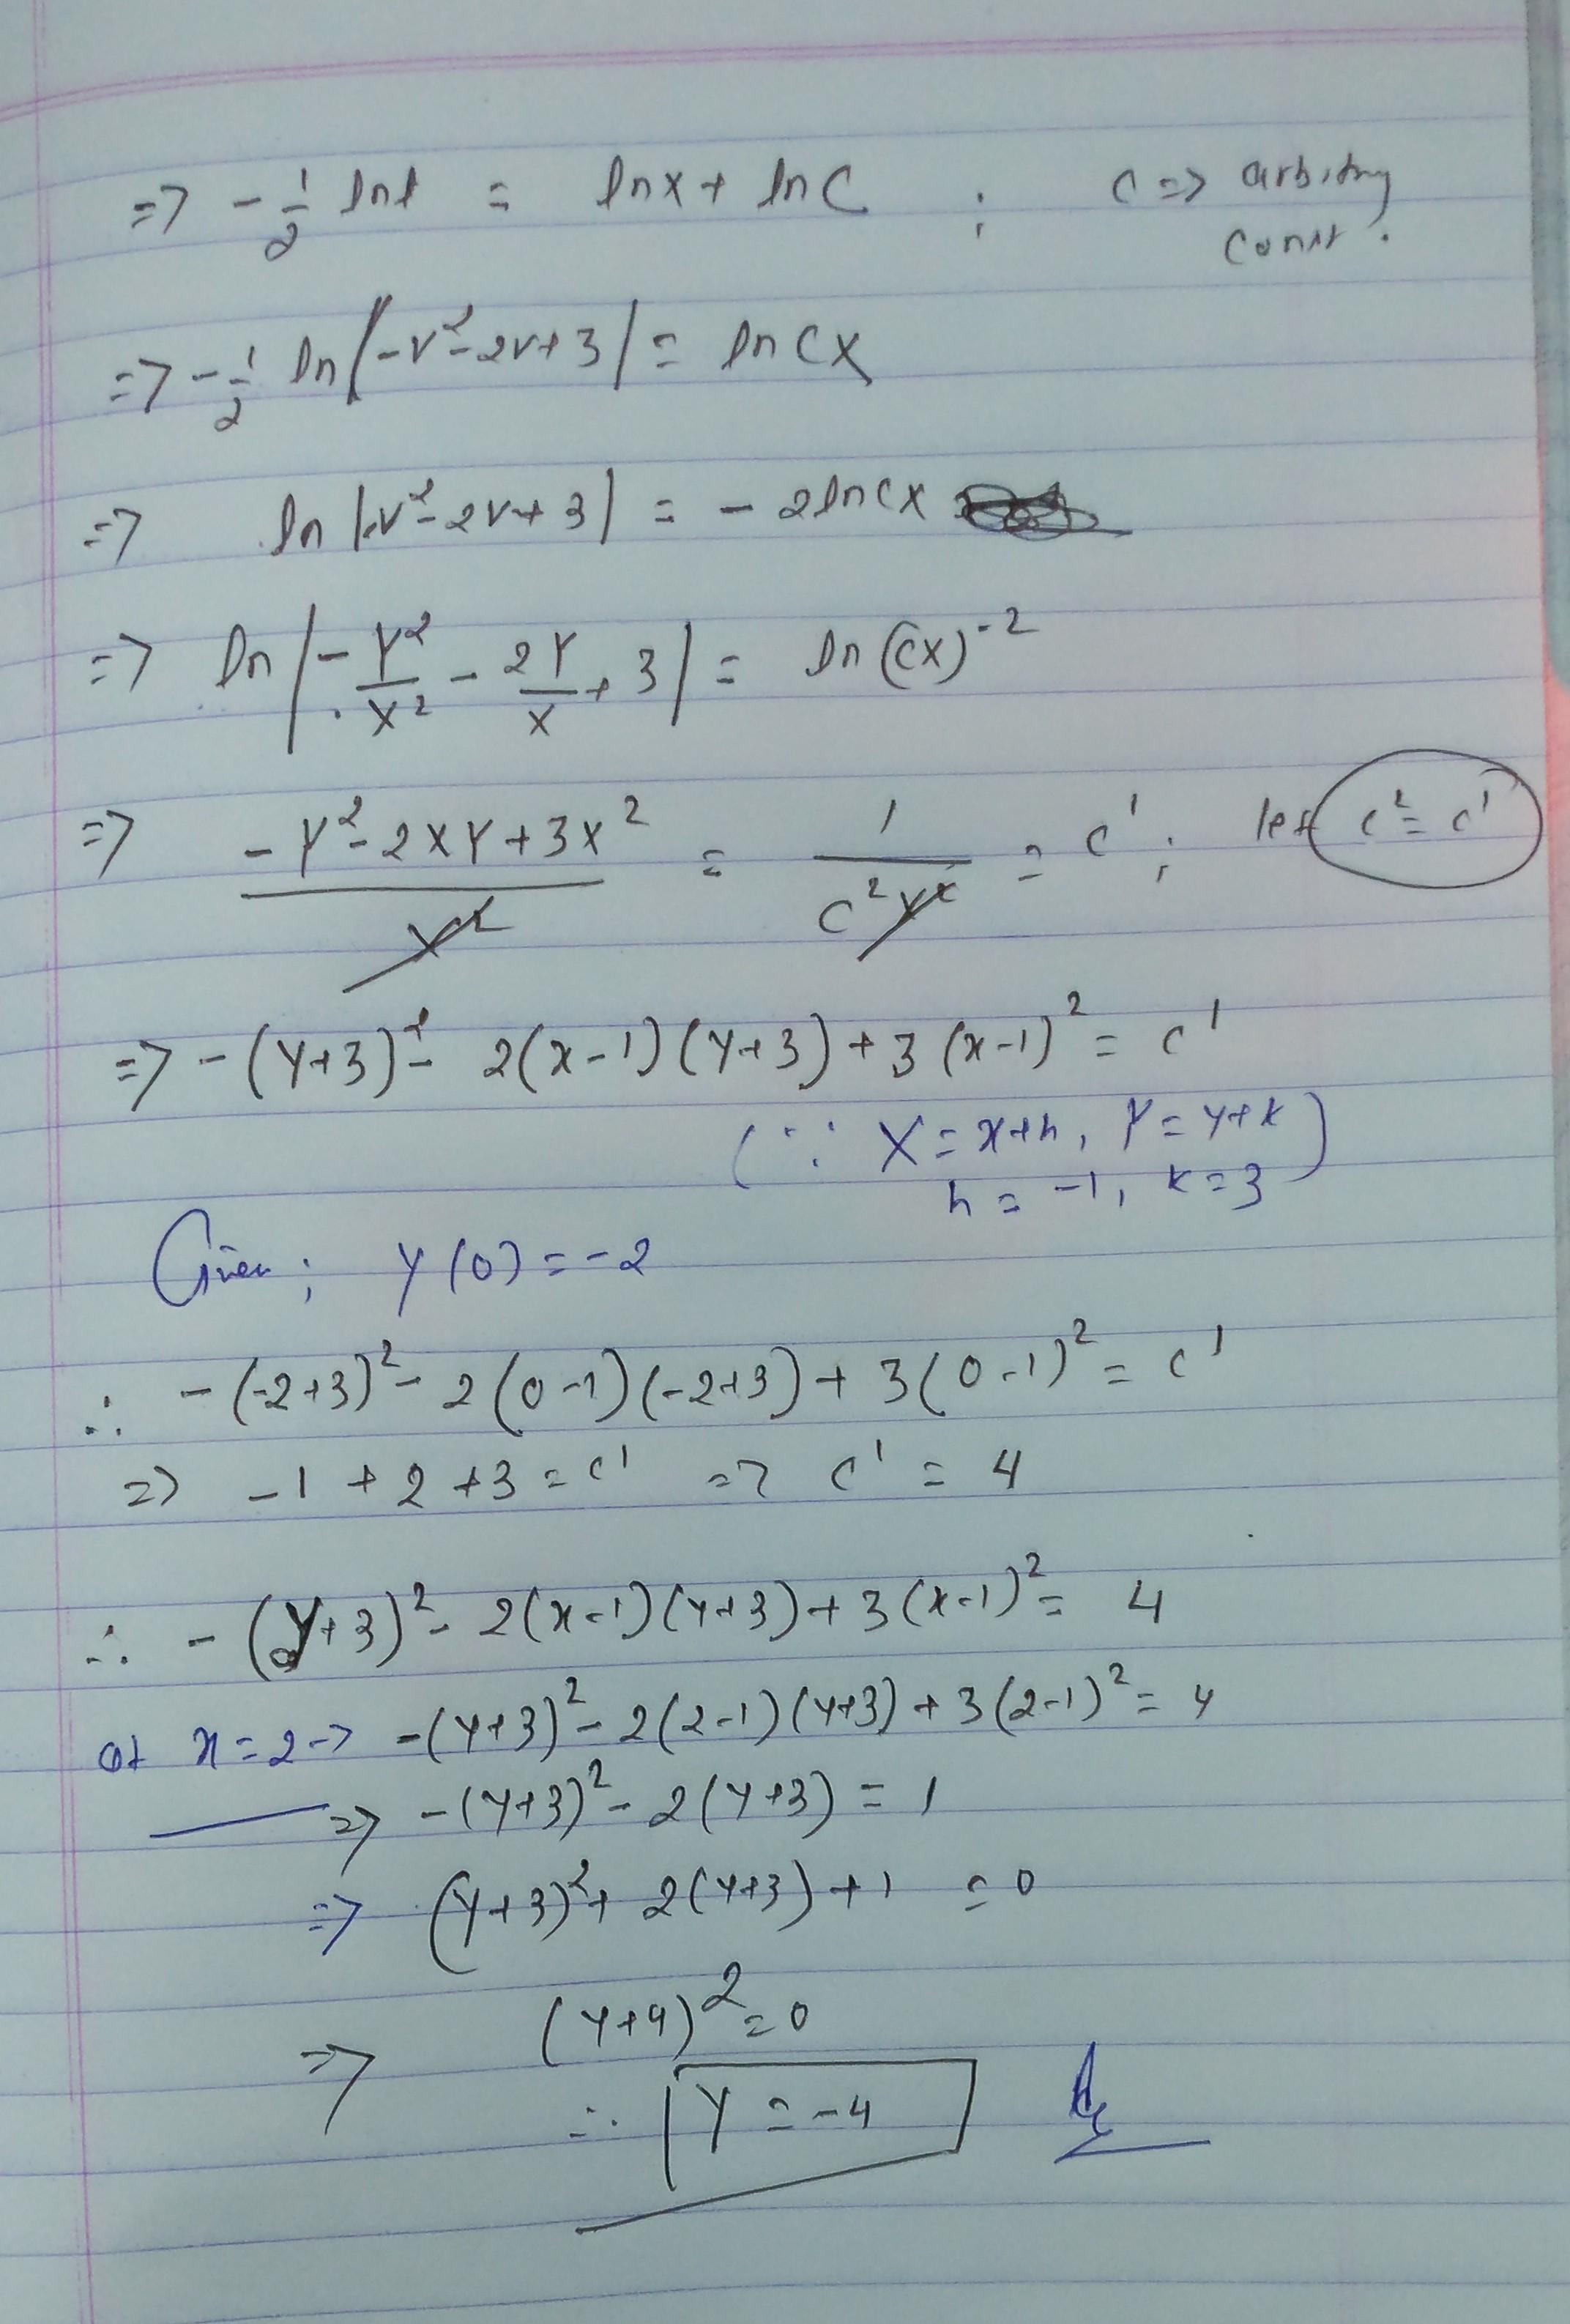 => -1/2 lnt = lnx + lnC ; C => arbitrary
const.
=> -1/2 ln|-v²-2v+3| = ln CX
=> ln|-v²-2v+3| = -2lnCX
=> ln|-Y²/X² - 2Y/X + 3| = ln(CX)⁻²
=> (-Y²-2XY+3X²)/X² = 1/(C²X²) = C' ; let C² = C'
=> -(y+3)² - 2(x-1)(y+3) + 3(x-1)² = C'
(∵ X = x+h, Y = y+k)
h = -1, k = 3
Given; y(0) = -2
∴ -(-2+3)² - 2(0-1)(-2+3) + 3(0-1)² = C'
=> -1+2+3 = C' => C' = 4
∴ -(y+3)² - 2(x-1)(y+3) + 3(x-1)² = 4
at x=2 -> -(y+3)² - 2(2-1)(y+3) + 3(2-1)² = 4
=> -(y+3)² - 2(y+3) = 1
=> (y+3)² + 2(y+3) + 1 = 0
=> (y+4)² = 0
∴ y = -4